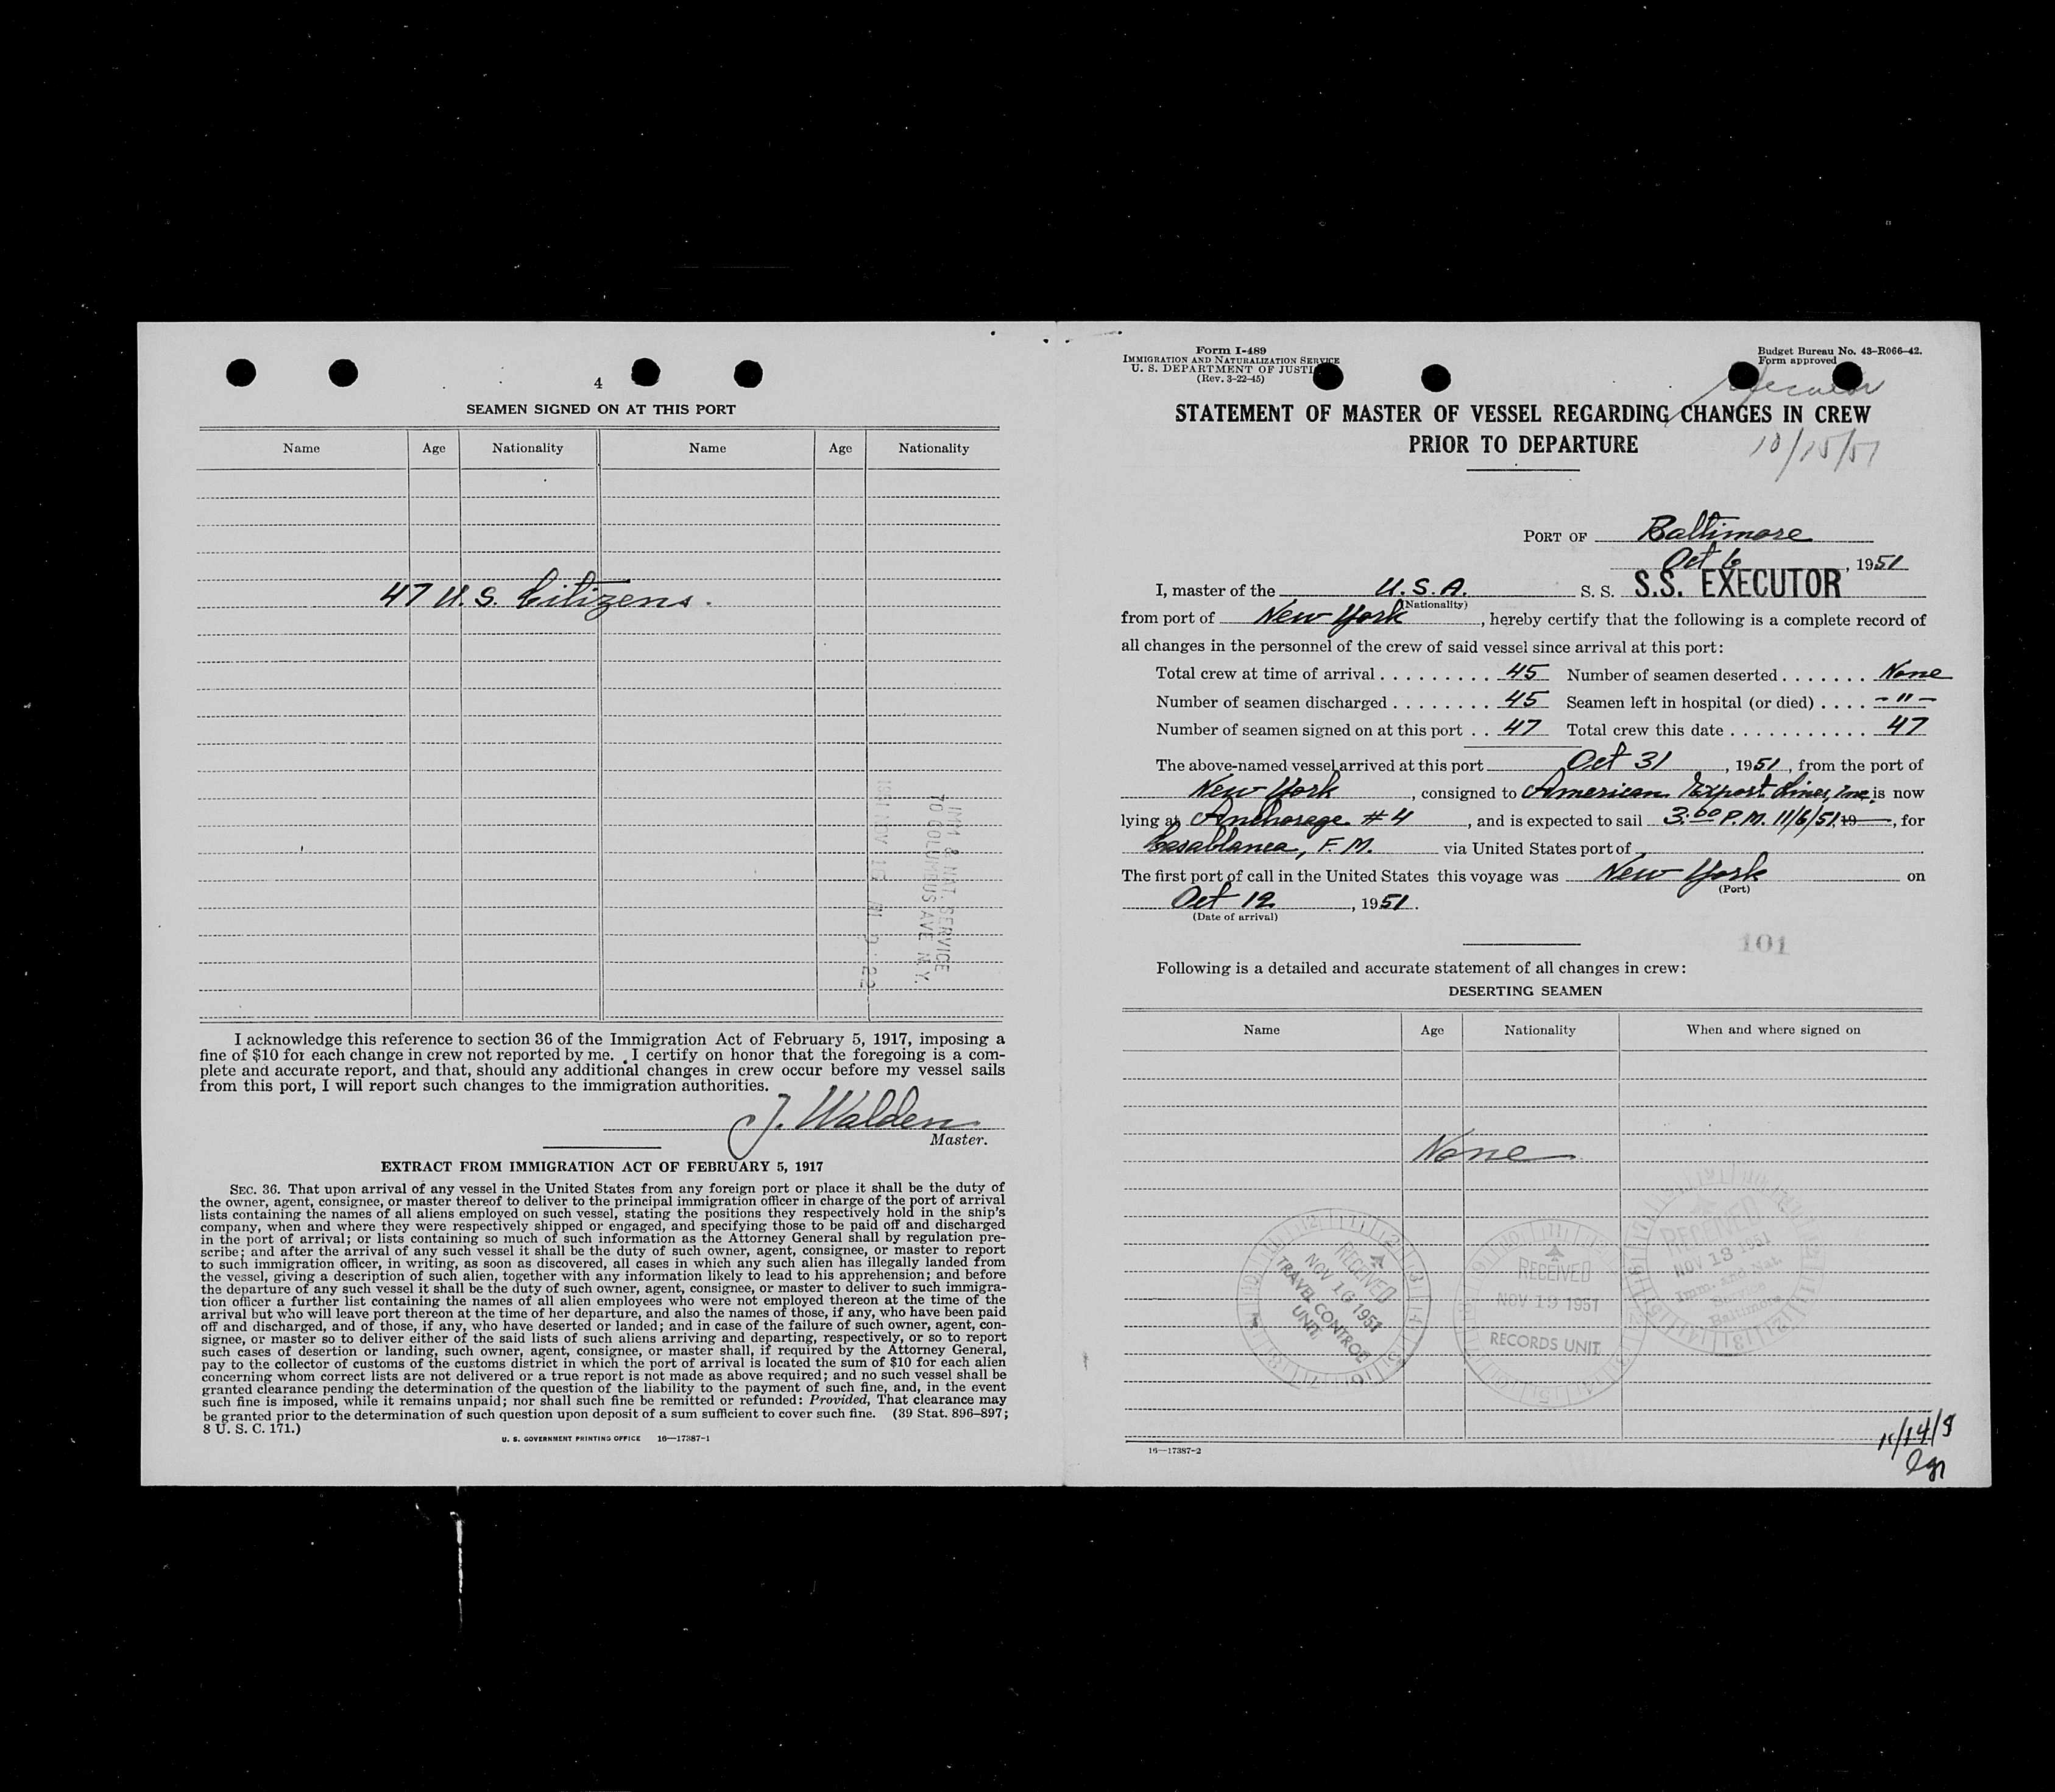 4
SEAMEN SIGNED ON AT THIS PORT
Name Age Nationality Name Age Nationality
47 U.S. Citizens.
IMM & NAT. SERVICE
70 COLUMBUS AVE N.Y.
1951 NOV
I acknowledge this reference to section 36 of the Immigration Act of February 5, 1917, imposing a
fine of $10 for each change in crew not reported by me. I certify on honor that the foregoing is a com-
plete and accurate report, and that, should any additional changes in crew occur before my vessel sails
from this port, I will report such changes to the immigration authorities.
J. Walden
Master.
EXTRACT FROM IMMIGRATION ACT OF FEBRUARY 5, 1917
SEC. 36. That upon arrival of any vessel in the United States from any foreign port or place it shall be the duty of
the owner, agent, consignee, or master thereof to deliver to the principal immigration officer in charge of the port of arrival
lists containing the names of all aliens employed on such vessel, stating the positions they respectively hold in the ship's
company, when and where they were respectively shipped or engaged, and specifying those to be paid off and discharged
in the port of arrival; or lists containing so much of such information as the Attorney General shall by regulation pre-
scribe; and after the arrival of any such vessel it shall be the duty of such owner, agent, consignee, or master to report
to such immigration officer, in writing, as soon as discovered, all cases in which any such alien has illegally landed from
the vessel, giving a description of such alien, together with any information likely to lead to his apprehension; and before
the departure of any such vessel it shall be the duty of such owner, agent, consignee, or master to deliver to such immigra-
tion officer a further list containing the names of all alien employees who were not employed thereon at the time of the
arrival but who will leave port thereon at the time of her departure, and also the names of those, if any, who have been paid
off and discharged, and of those, if any, who have deserted or landed; and in case of the failure of such owner, agent, con-
signee, or master so to deliver either of the said lists of such aliens arriving and departing, respectively, or so to report
such cases of desertion or landing, such owner, agent, consignee, or master shall, if required by the Attorney General,
pay to the collector of customs of the customs district in which the port of arrival is located the sum of $10 for each alien
concerning whom correct lists are not delivered or a true report is not made as above required; and no such vessel shall be
granted clearance pending the determination of the question of the liability to the payment of such fine, and, in the event
such fine is imposed, while it remains unpaid; nor shall such fine be remitted or refunded: Provided, That clearance may
be granted prior to the determination of such question upon deposit of a sum sufficient to cover such fine. (39 Stat. 896–897;
8 U. S. C. 171.)
U. S. GOVERNMENT PRINTING OFFICE 16—17387-1
Form I-489
IMMIGRATION AND NATURALIZATION SERVICE
U. S. DEPARTMENT OF JUSTI
(Rev. 3-22-45)
Budget Bureau No. 43-R066-42.
Form approved
STATEMENT OF MASTER OF VESSEL REGARDING CHANGES IN CREW
PRIOR TO DEPARTURE
10/15/51
PORT OF Baltimore
Oct 6, 1951
I, master of the U.S.A. S. S. S.S. EXECUTOR
(Nationality)
from port of New York, hereby certify that the following is a complete record of
all changes in the personnel of the crew of said vessel since arrival at this port:
Total crew at time of arrival 45 Number of seamen deserted None
Number of seamen discharged 45 Seamen left in hospital (or died) - " -
Number of seamen signed on at this port 47 Total crew this date 47
The above-named vessel arrived at this port Oct 31, 1951, from the port of
New York, consigned to American Export Lines, Inc. is now
lying at Anchorage #4, and is expected to sail 3:00 P.M. 11/6/51, 19, for
Casablanca, F. M. via United States port of
The first port of call in the United States this voyage was New York on
(Port)
Oct 12, 1951.
(Date of arrival)
101
Following is a detailed and accurate statement of all changes in crew:
DESERTING SEAMEN
Name Age Nationality When and where signed on
None
RECEIVED
NOV 16 1951
TRAVEL CONTROL
UNIT
RECEIVED
NOV 19 1951
RECORDS UNIT
RECEIVED
NOV 13 1951
Imm. and Nat.
Service
Baltimore
16—17387-2